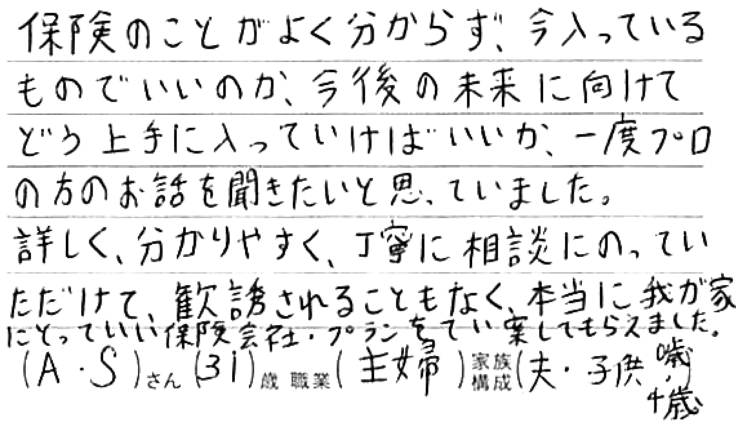 保険のことがよく分からず、今入っている
ものでいいのか、今後の未来に向けて
どう上手に入っていけばいいか、一度プロ
の方のお話を聞きたいと思っていました。
詳しく、分かりやすく、丁寧に相談にのってい
ただけて、歓誘されることもなく、本当に我が家
にとっていい保険会社・プランをてい案してもらえました。
(A・S)さん (31)歳 職業(主婦) 家族構成(夫・子供 0歳
4歳)